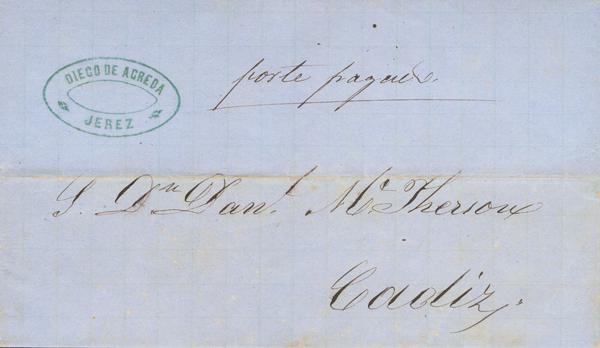 DIEGO DE AGREDA
JEREZ
porte pagado.
S. Dn Danl. McPherson
Cadiz.